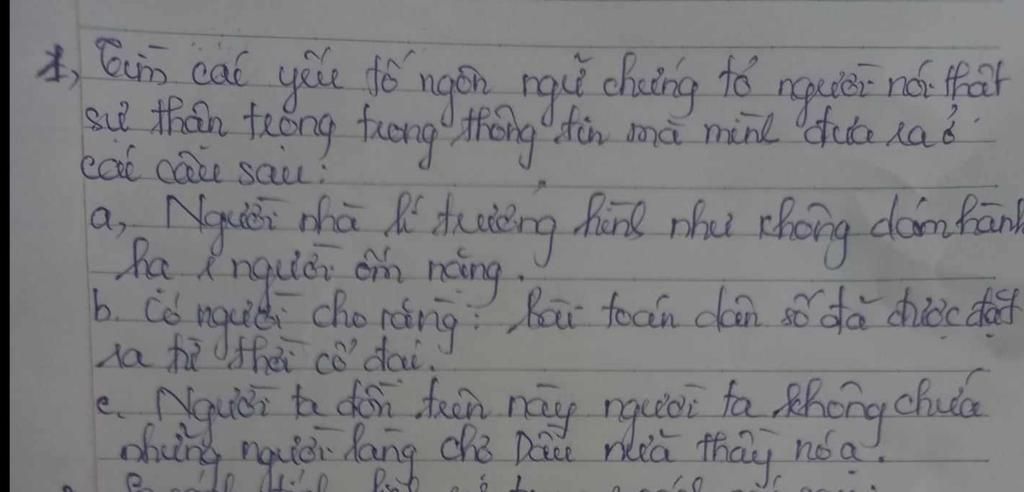 1, Tìm các yếu tố ngôn ngữ chứng tỏ người nói thật
sự thận trọng trong thông tin mà mình đưa ra ở
các câu sau:
a, Người nhà lí trưởng hình như không dám hành
hạ 1 người ốm nặng.
b. Có người cho rằng: bài toán dân số đã được đặt
ra từ thời cổ đại.
c. Người ta đồn trên này người ta không chứa
những người làng chợ Dầu nữa thầy nó ạ.